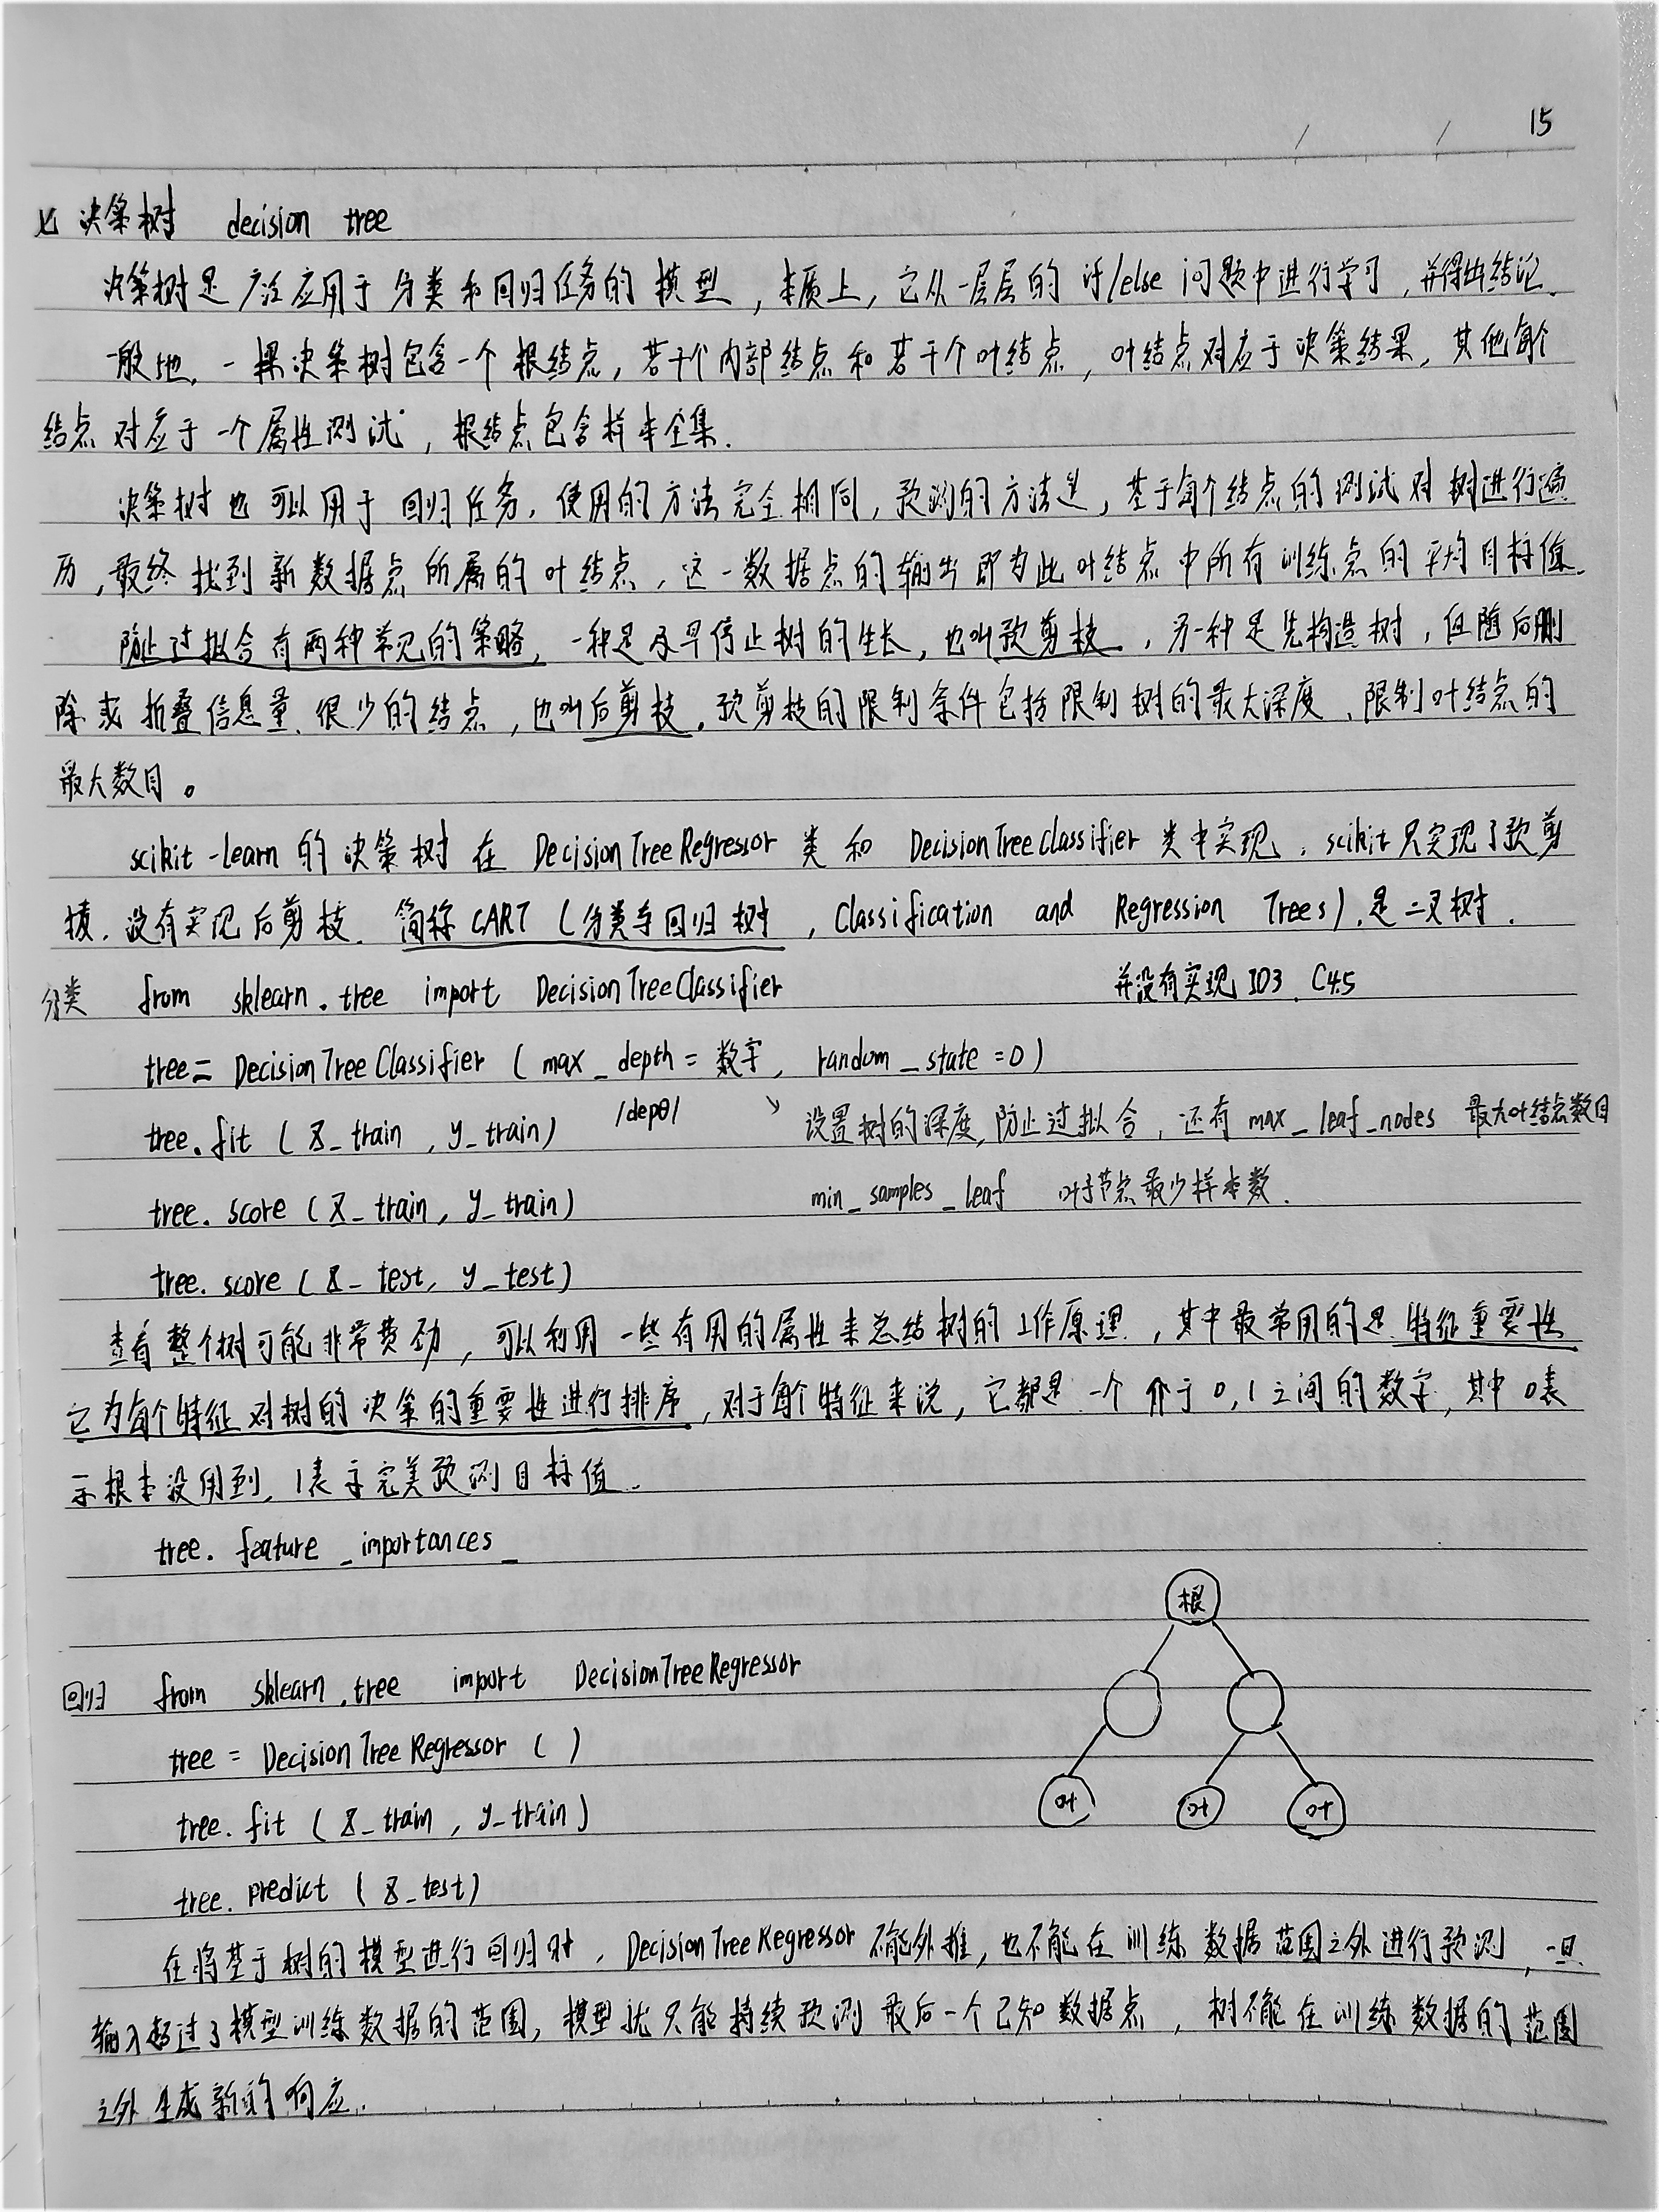 15
七 决策树 decision tree
决策树是广泛应用于分类和回归任务的模型，本质上，它从一层层的if/else问题中进行学习，并得出结论.
一般地，一棵决策树包含一个根结点，若干个内部结点和若干个叶结点，叶结点对应于决策结果，其他每个
结点对应于一个属性测试，根结点包含样本全集.
决策树也可以用于回归任务，使用的方法完全相同，预测的方法是，基于每个结点的测试对树进行遍
历，最终找到新数据点所属的叶结点，这一数据点的输出即为此叶结点中所有训练点的平均目标值.
防止过拟合有两种常见的策略，一种是及早停止树的生长，也叫预剪枝，另一种是先构造树，但随后删
除或折叠信息量很少的结点，也叫后剪枝，预剪枝的限制条件包括限制树的最大深度、限制叶结点的
最大数目。
scikit-learn的决策树在DecisionTreeRegressor类和DecisionTreeClassifier类中实现，scikit只实现了预剪
枝，没有实现后剪枝. 简称CART (分类与回归树，Classification and Regression Trees)，是二叉树.
分类 from sklearn.tree import DecisionTreeClassifier 并没有实现ID3、C4.5
tree = DecisionTreeClassifier (max_depth = 数字, random_state = 0)
tree.fit (X_train, y_train) /depθ/ ↘ 设置树的深度，防止过拟合，还有max_leaf_nodes 最大叶结点数目
tree.score (X_train, y_train) min_samples_leaf 叶子节点最少样本数.
tree.score (X_test, y_test)
查看整个树可能非常费劲，可以利用一些有用的属性来总结树的工作原理，其中最常用的是特征重要性
它为每个特征对树的决策的重要性进行排序，对于每个特征来说，它都是一个介于0,1之间的数字，其中0表
示根本没用到，1表示完美预测目标值.
tree.feature_importances_
根
回归 from sklearn.tree import DecisionTreeRegressor
tree = DecisionTreeRegressor ( )
tree.fit (X_train, y_train) 叶 叶 叶
tree.predict (X_test)
在将基于树的模型进行回归时，DecisionTreeRegressor不能外推，也不能在训练数据范围之外进行预测，一旦
输入超过了模型训练数据的范围，模型就只能持续预测最后一个已知数据点，树不能在训练数据的范围
之外生成新的响应.